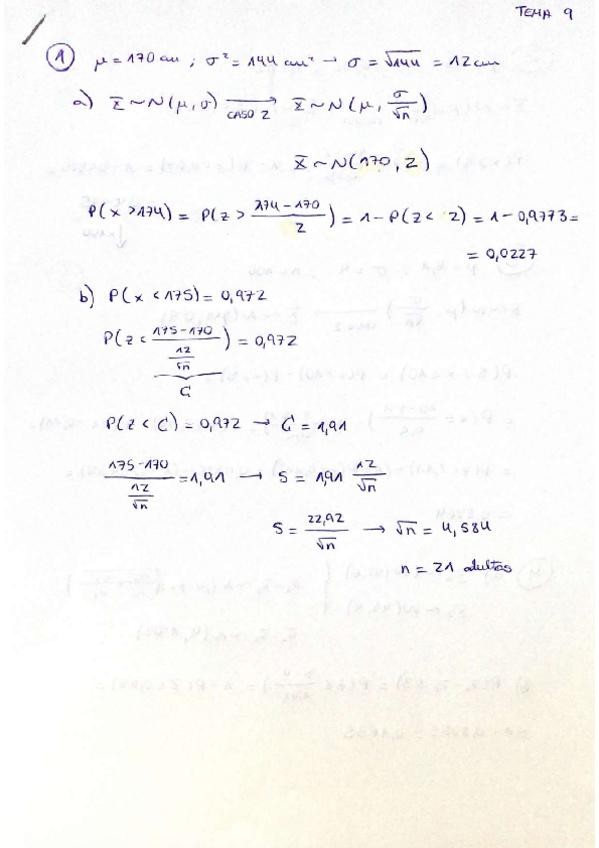 TEMA 9
① μ = 170 cm ; σ² = 144 cm² → σ = √144 = 12 cm
a) x̄ ~ N(μ, σ) → CASO 2 x̄ ~ N(μ, σ/√n)
x̄ ~ N(170, 2)
P(x > 174) = P(z > (174 - 170)/2) = 1 - P(z < 2) = 1 - 0,9773 =
= 0,0227
b) P(x < 175) = 0,972
P(z < (175 - 170)/(12/√n)) = 0,972
C
P(z < C) = 0,972 → C = 1,91
(175 - 170)/(12/√n) = 1,91 → 5 = 1,91 12/√n
5 = 22,92/√n → √n = 4,584
n = 21 adultos